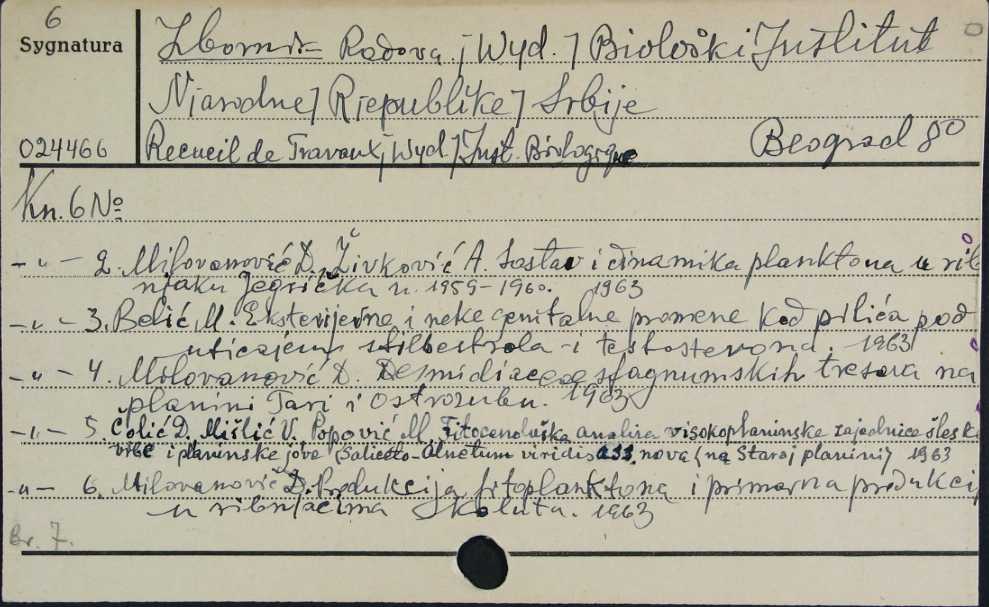 6
Sygnatura
Zbornik Radova. [Wyd.] Bioloski Institut
N[arodne] R[epublike] Srbije
024466 Recueil de Travaux [Wyd] Inst. Biologique Beograd 8°
Kn. 6 No
-"- 2. Milovanović D., Živković A. Sastav i dinamika planktona u rib
njaku Jegrička u. 1959-1960. 1963
-"- 3. Belić, M. Eksterijerne i neke genitalne promene kod pilića pod
uticajem stilbestrola i testosterona. 1963
-"- 4. Milovanović D. Desmidiaceae sfagnumskih tresava na
planini Tari i Ostrozubu. 1963
-"- 5. Čolić D, Mišić V. Popović M. Fitocenološka analiza visokoplaninske zajednice šlesk
vrbe i planinske jove (Saliceto-Alnetum viridis ass. nova (na Staroj planini) 1963
-"- 6. Milovanović D. Produkcija fitoplanktona i primarna produkcij
u ribnjacima 1963
Br. 7.